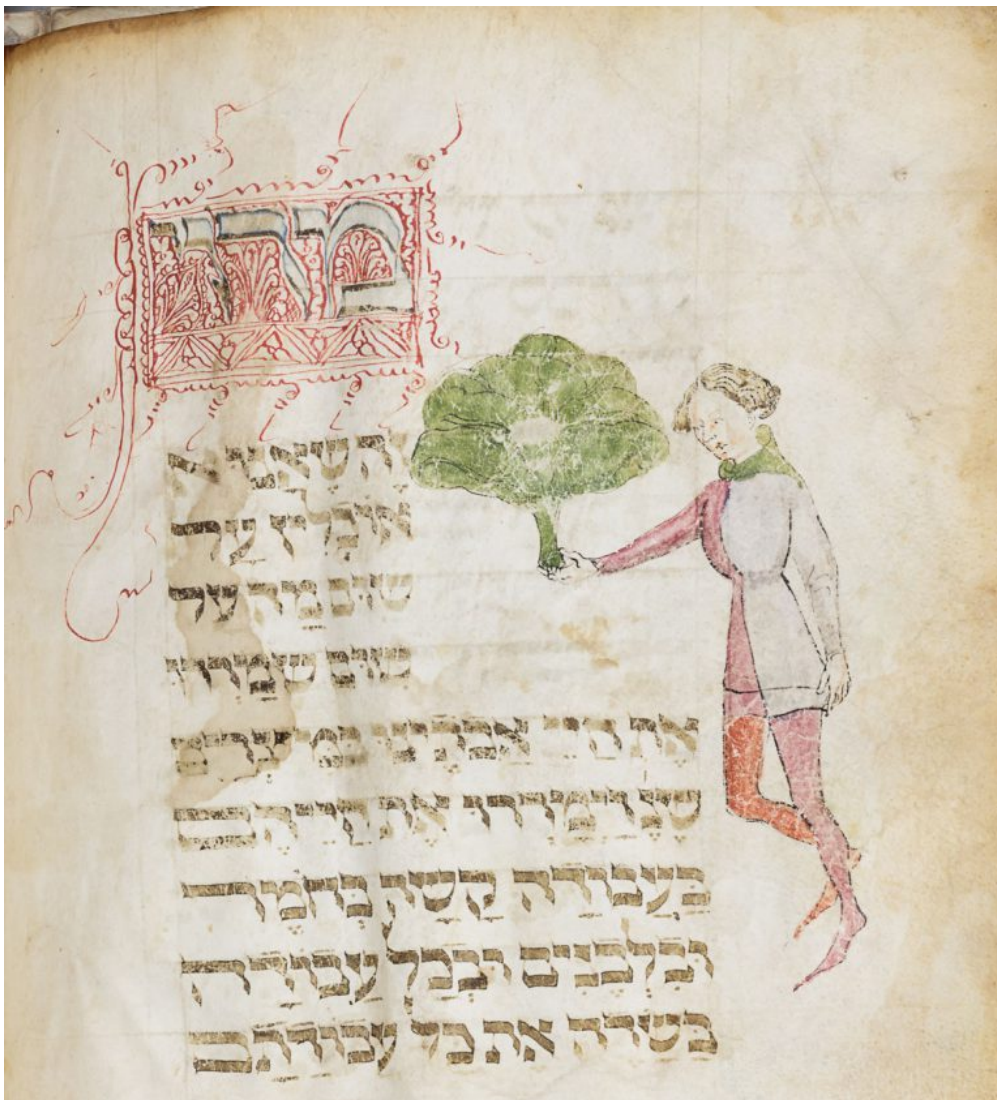 מרור
זה שאנו א
אוכלין על
שום מה על
שום שמררו
את חיי אבתינו במצרים
שנ וימררו את חייהם
בעבודה קשה בחמר
ובלבנים ובכל עבודה
בשדה את כל עבודתם